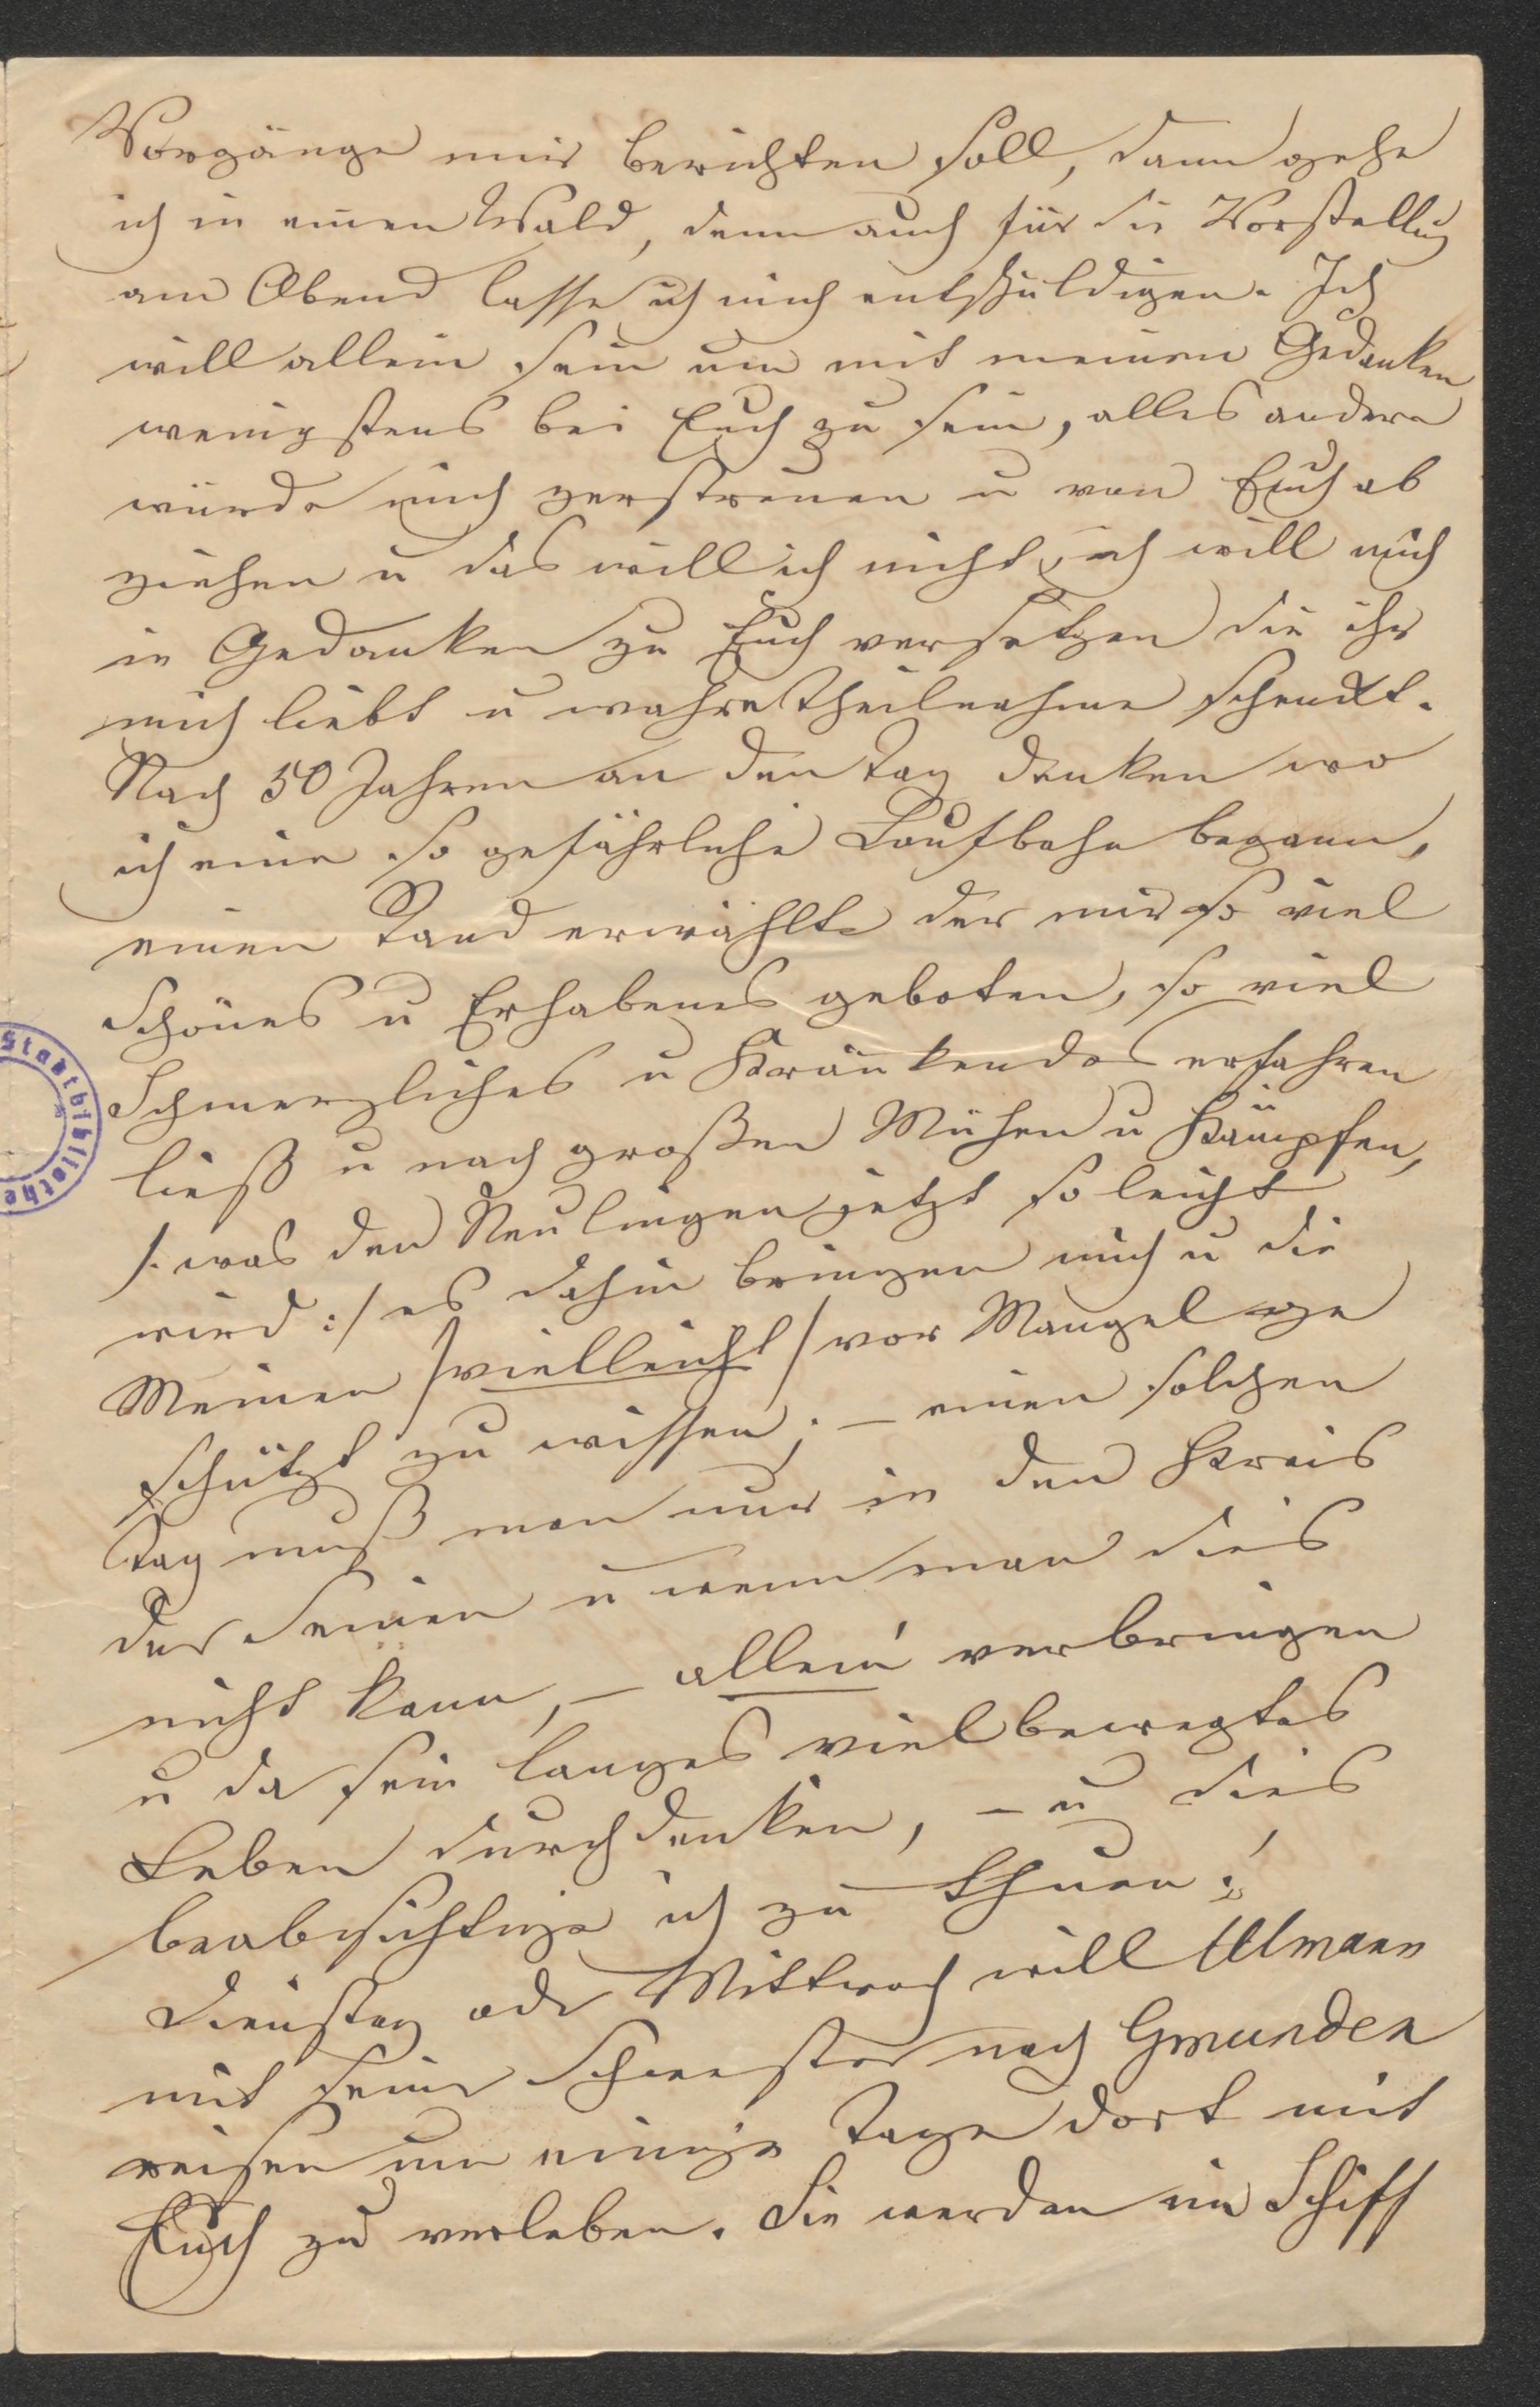 Vorgänge mir berichten soll, dann gehe
ich in einen Wald, denn auch für die Vorstellung
am Abend lasse ich mich entschuldigen. Ich
will allein sein um mit meinen Gedanken
wenigstens bei Euch zu sein, alles andere
würde mich zerstreuen u von Euch ab
ziehen u das will ich nicht, ich will mich
in Gedanken zu Euch versetzen die ihr
mich liebt u wahre Theilnahme schenckt.
Nach 50 Jahren an den Tag denken wo
ich eine so gefährliche Laufbahn begann,
einen Stand erwählte der mir so viel
Schönes u Erhabenes geboten, so viel
Schmerzliches u Kränkendes erfahren
ließ u nach großen Mühen u Kämpfen,
/: was den Neulingen jetzt so leicht
wird :/ es dahin bringen mich u die
Meinen /vielleicht/ vor Mangel ge
schützt zu wissen; – einen solchen
Tag muß man nur in den Kreis
der Seinen u wenn man dies
nicht kann, – allein verbringen
u da sein langes vielbewegtes
Leben durchdenken, – u dies
beabsichtige ich zu thuen!
Dienstag oder Mittwoch will Ulmann
mit seiner Schwester nach Gmunden
reisen um einige Tage dort mit
Euch zu verleben. Sie werden im Schiff
Stadtbibliothe